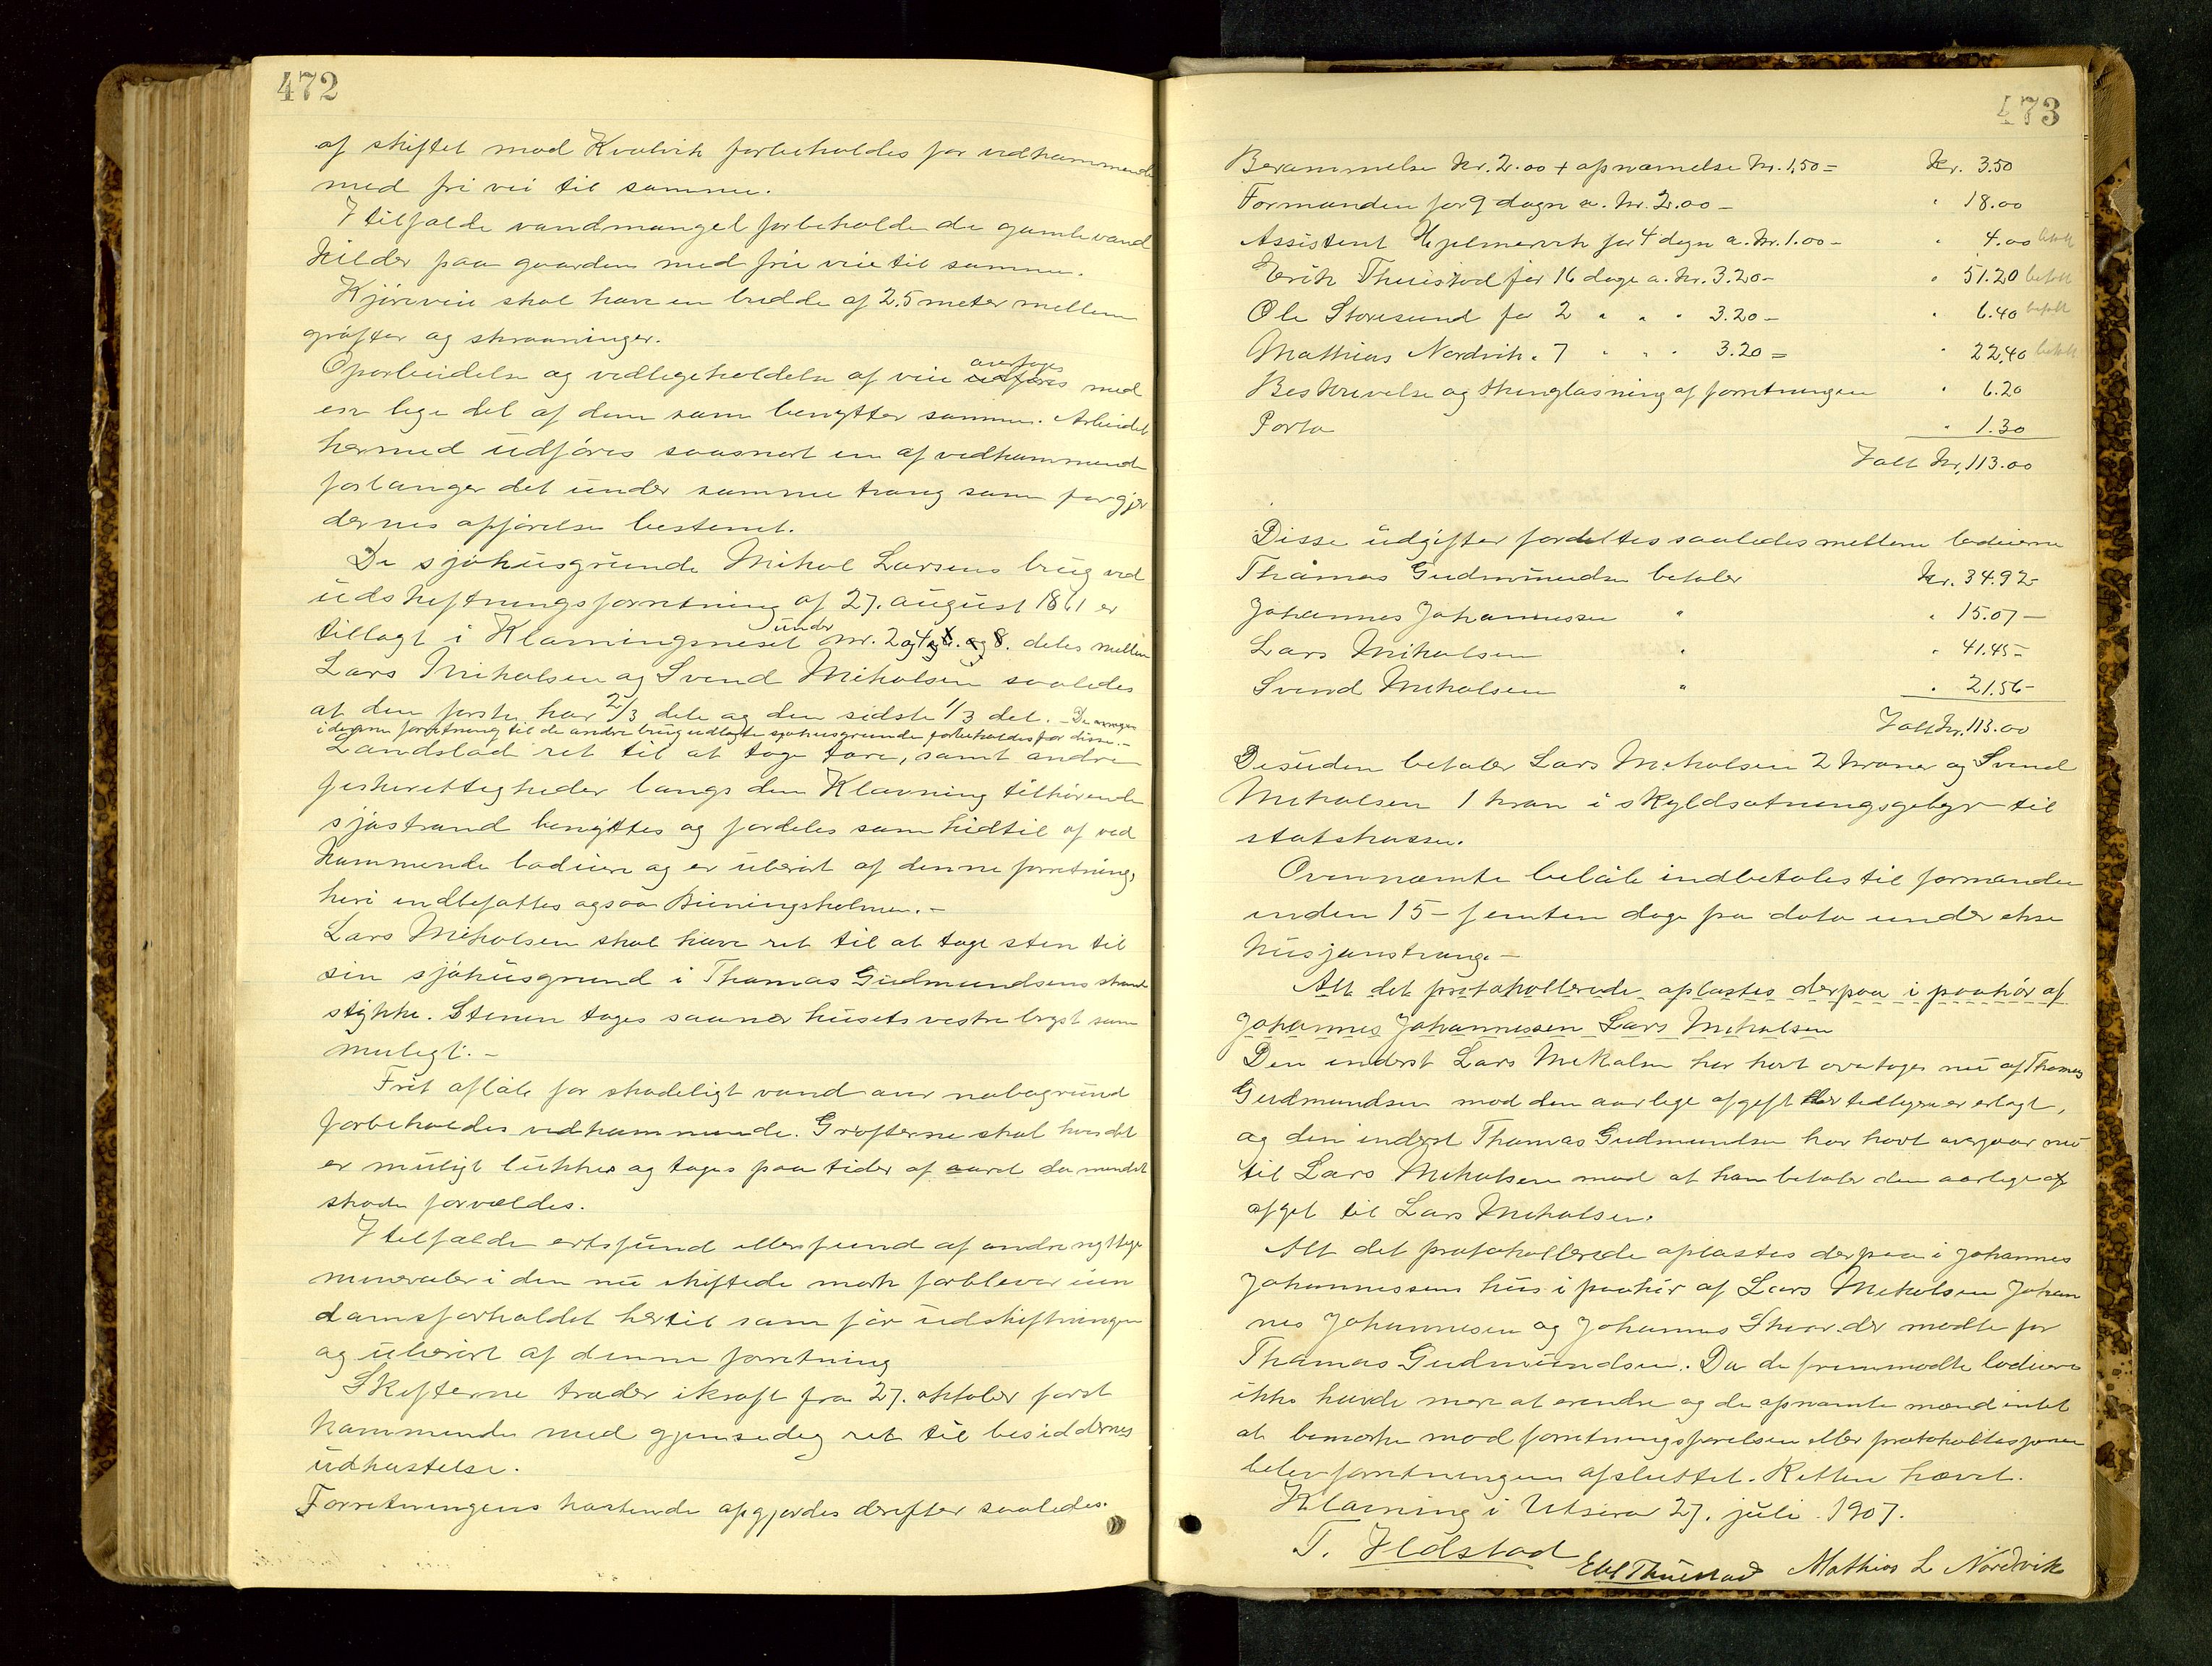 472
af skiftet mod Kvalvik forbeholdes for vedkommende
med fri vei til samme.
I tilfælde vandmangel forbeholdes de gamle vand
kilder paa gaarden med frie veie til samme.
Kjøreveie skal have en bredde af 2.5 meter mellem
grøfter og skraaninger.
Oparbeidelse og vedligeholdelse af veie overtages med
en lige del af dem som benytter samme. Arbeidet
hermed udføres saasnart en af vedkommende
forlanger det under samme tvang som for gjer
dernes opførelse bestemt.
De sjøhusgrunde Mikal Larsens brug ved
udskiftningsforretning af 27. august 1861 er
tillagt i Klovningsneset under nr. 2 og 4 deles mellem
Lars Mikalsen og Svend Mikalsen saaledes
at den første har 2/3 dele og den sidste 1/3 del. – De
i denne forretning til de andre brug udlagte sjøhusgrunde forbeholdes for disse. –
Landslod ret til at tage tare, samt andre
fiskerettigheder langs den Klovning tilhørende
sjøstrand benyttes og fordeles som hidtil af ved
kommende lodeiere og er uberørt af denne forretning,
heri indbefattes ogsaa Beiningsholmen. –
Lars Mikalsen skal have ret til at tage sten til
sin sjøhusgrund i Thomas Gudmundsens strand
stykke. Stenen tages saa nær husets vestre bryst som
muligt. –
Frit afløb for skadeligt vand over nabogrund
forbeholdes vedkommende. Grøfterne skal hvis det
er muligt lukkes og tages paa tider af aaret da mindst
skade forvoldes.
I tilfælde ertsfund eller fund af andre nyttige
mineraler i den nu skiftede mark forbliver eien
domsforholdet hertil som før udskiftningen
og uberørt af denne forretning
Skifterne træder i kraft fra 27. oktober først
kommende med gjensidig ret til besiddernes
udkastelse.
Forretningens kostende opgjordes derefter saaledes.
473
Berammelse kr. 2.00 + opnævnelse kr. 1,50 = kr. 3.50
Formanden for 9 dagn a. kr. 2.00 – " 18.00
Assistent Hjelmervik for 4 dagn a. kr. 1.00 – " 4.00 betalt
Erik Thuestad for 16 dage a. kr. 3.20 – " 51.20 betalt
Ole Storesund for 2 " " " 3.20 – " 6.40 betalt
Mathias Nordvik " 7 " " " 3.20 = " 22,40 betalt
Beskrivelse og thinglæsning af forretningen " 6.20
Porto " 1.30
Ialt kr. 113.00
Disse udgifter fordeltes saaledes mellem lodeierne
Thomas Gudmundsen betaler kr. 34.92 –
Johannes Johannessen " " 15.07 –
Lars Mikalsen " " 41.45 –
Svend Mikalsen " " 21.56 –
Ialt kr. 113.00
Desuden betaler Lars Mikalsen 2 kroner og Svend
Mikalsen 1 kron i skyldsætningsgebyr til
statskassen.
Ovennævnte beløb indbetales til formanden
inden 15 – femten dage fra dato under ekse
kusjonstvang –
Alt det protokollerede oplæstes derpaa i paahør af
Johannes Johannessen Lars Mikalsen
Den inderst Lars Mikalsen har havt overtages nu af Thomas
Gudmundsen mod den aarlige afgift der tidligere er erlagt,
og den inderst Thomas Gudmundsen har havt overgaar nu
til Lars Mikalsen mod at han betaler den aarlige af
afget til Lars Mikalsen.
Alt det protokollerede oplæstes derpaa i Johannes
Johannessens hus i paahør af Lars Mikalsen Johan
nes Johannesen og Johannes Skaar der mødte for
Thomas Gudmundsen. Da de fremmødte lodeiere
ikke havde mere at erindre og de opnævnte mænd intet
at bemærke mod forretningsførelsen eller protokollasjonen
blev forretningen afsluttet. Retten hævet.
Klovning i Utsira 27. juli 1907.
T. Ildstad
E Thuestad Mathias L Nordvik